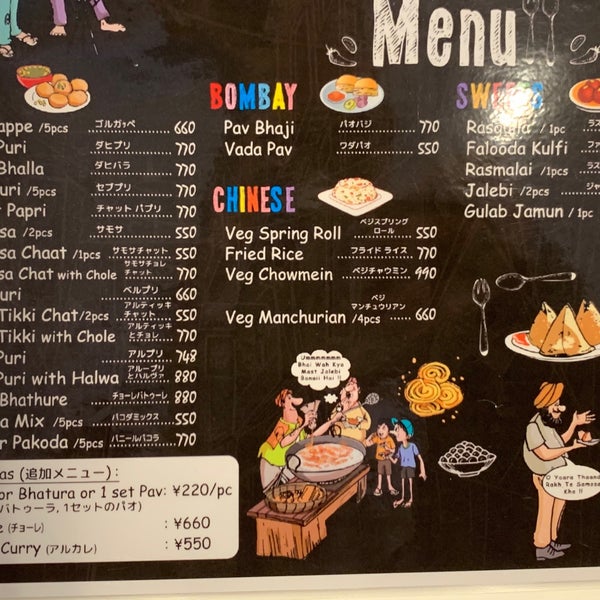 Menu
appe /5pcs ゴルガッペ 660
Puri ダヒプリ 770
Bhalla ダヒバラ 770
uri /5pcs セブプリ 770
Papri チャット パプリ 770
sa /2pcs サモサ 550
sa Chaat /1pcs サモサチャット 550
sa Chat with Chole サモサチョレチャット 770
uri ベルプリ 660
Tikki Chat/2pcs アルティッキチャット 550
Tikki with Chole アルティッキとチョレ 770
Puri アルプリ 748
Puri with Halwa アループリとハルヴァ 880
Bhathure チョーレバトゥーレ 880
a Mix /5pcs パコダミックス 550
r Pakoda /5pcs パニールパコラ 770
as (追加メニュー) :
or Bhatura or 1 set Pav: ¥220/pc
バトゥーラ, 1セットのパオ)
e (チョーレ) : ¥660
Curry (アルカレ) : ¥550
BOMBAY
Pav Bhaji パオバジ 770
Vada Pav ワダパオ 550
CHINESE
Veg Spring Roll ベジスプリングロール 550
Fried Rice フライド ライス 770
Veg Chowmein ベジチャウミン 990
Veg Manchurian /4pcs ベジマンチュウリアン 660
Ummmmmmm
Bhai Wah Kya
Mast Jalebi
Banaii Hai !!
SWEETS
Rasgulla / 1pc ラス
Falooda Kulfi ファ
Rasmalai / 1pc ラス
Jalebi /2pcs ジャ
Gulab Jamun / 1pc
O Yaara Thaand
Rakh Te Samose
Kha !!